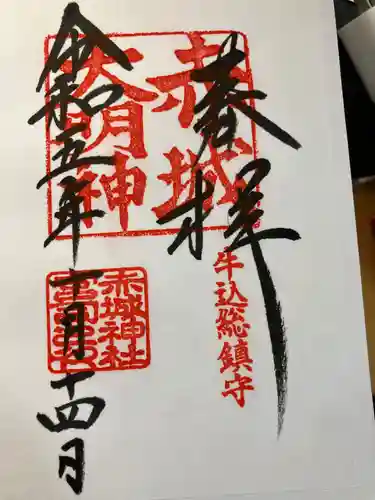 奉拝
赤城
大明神
牛込総鎮守
令和五年十一月十四日
赤城神社